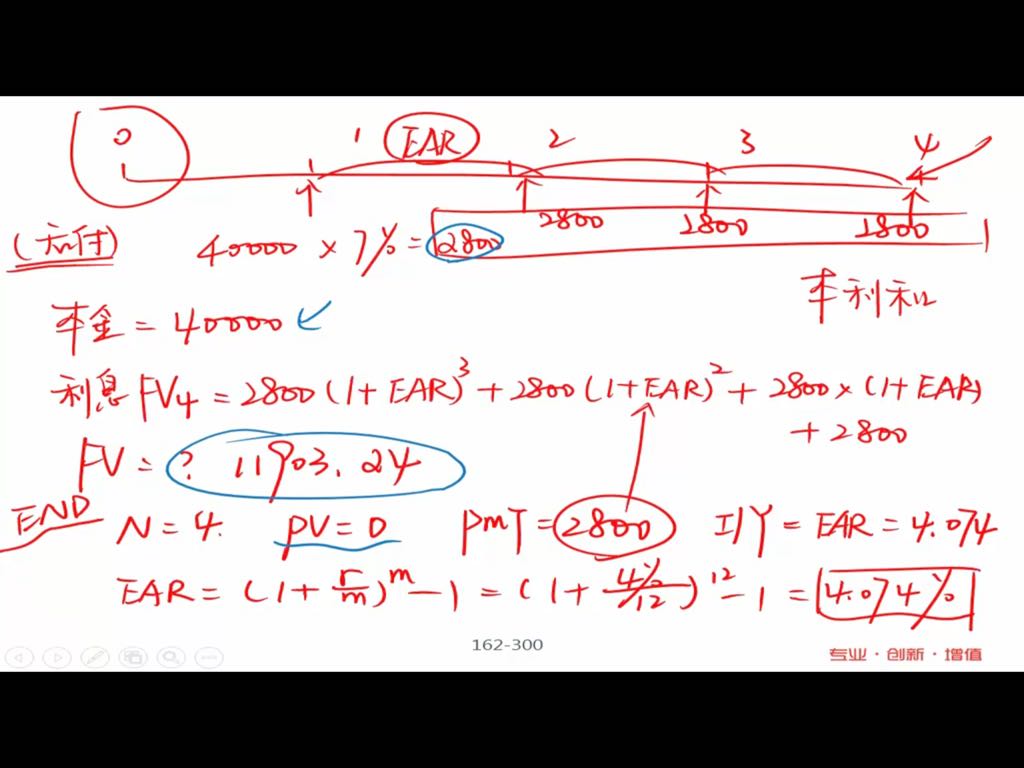 0 1 EAR 2 3 4
2800 2800 2800
(后付) 40000 × 7% = 2800
本利和
本金 = 40000
利息 FV4 = 2800 (1+EAR)³ + 2800 (1+EAR)² + 2800 × (1+EAR)
+ 2800
FV = ? 11903.24
END N = 4. PV = 0 PMT = 2800 I/Y = EAR = 4.074
EAR = (1 + r/m)^m - 1 = (1 + 4%/12)^12 - 1 = 4.074%
162-300
专业·创新·增值